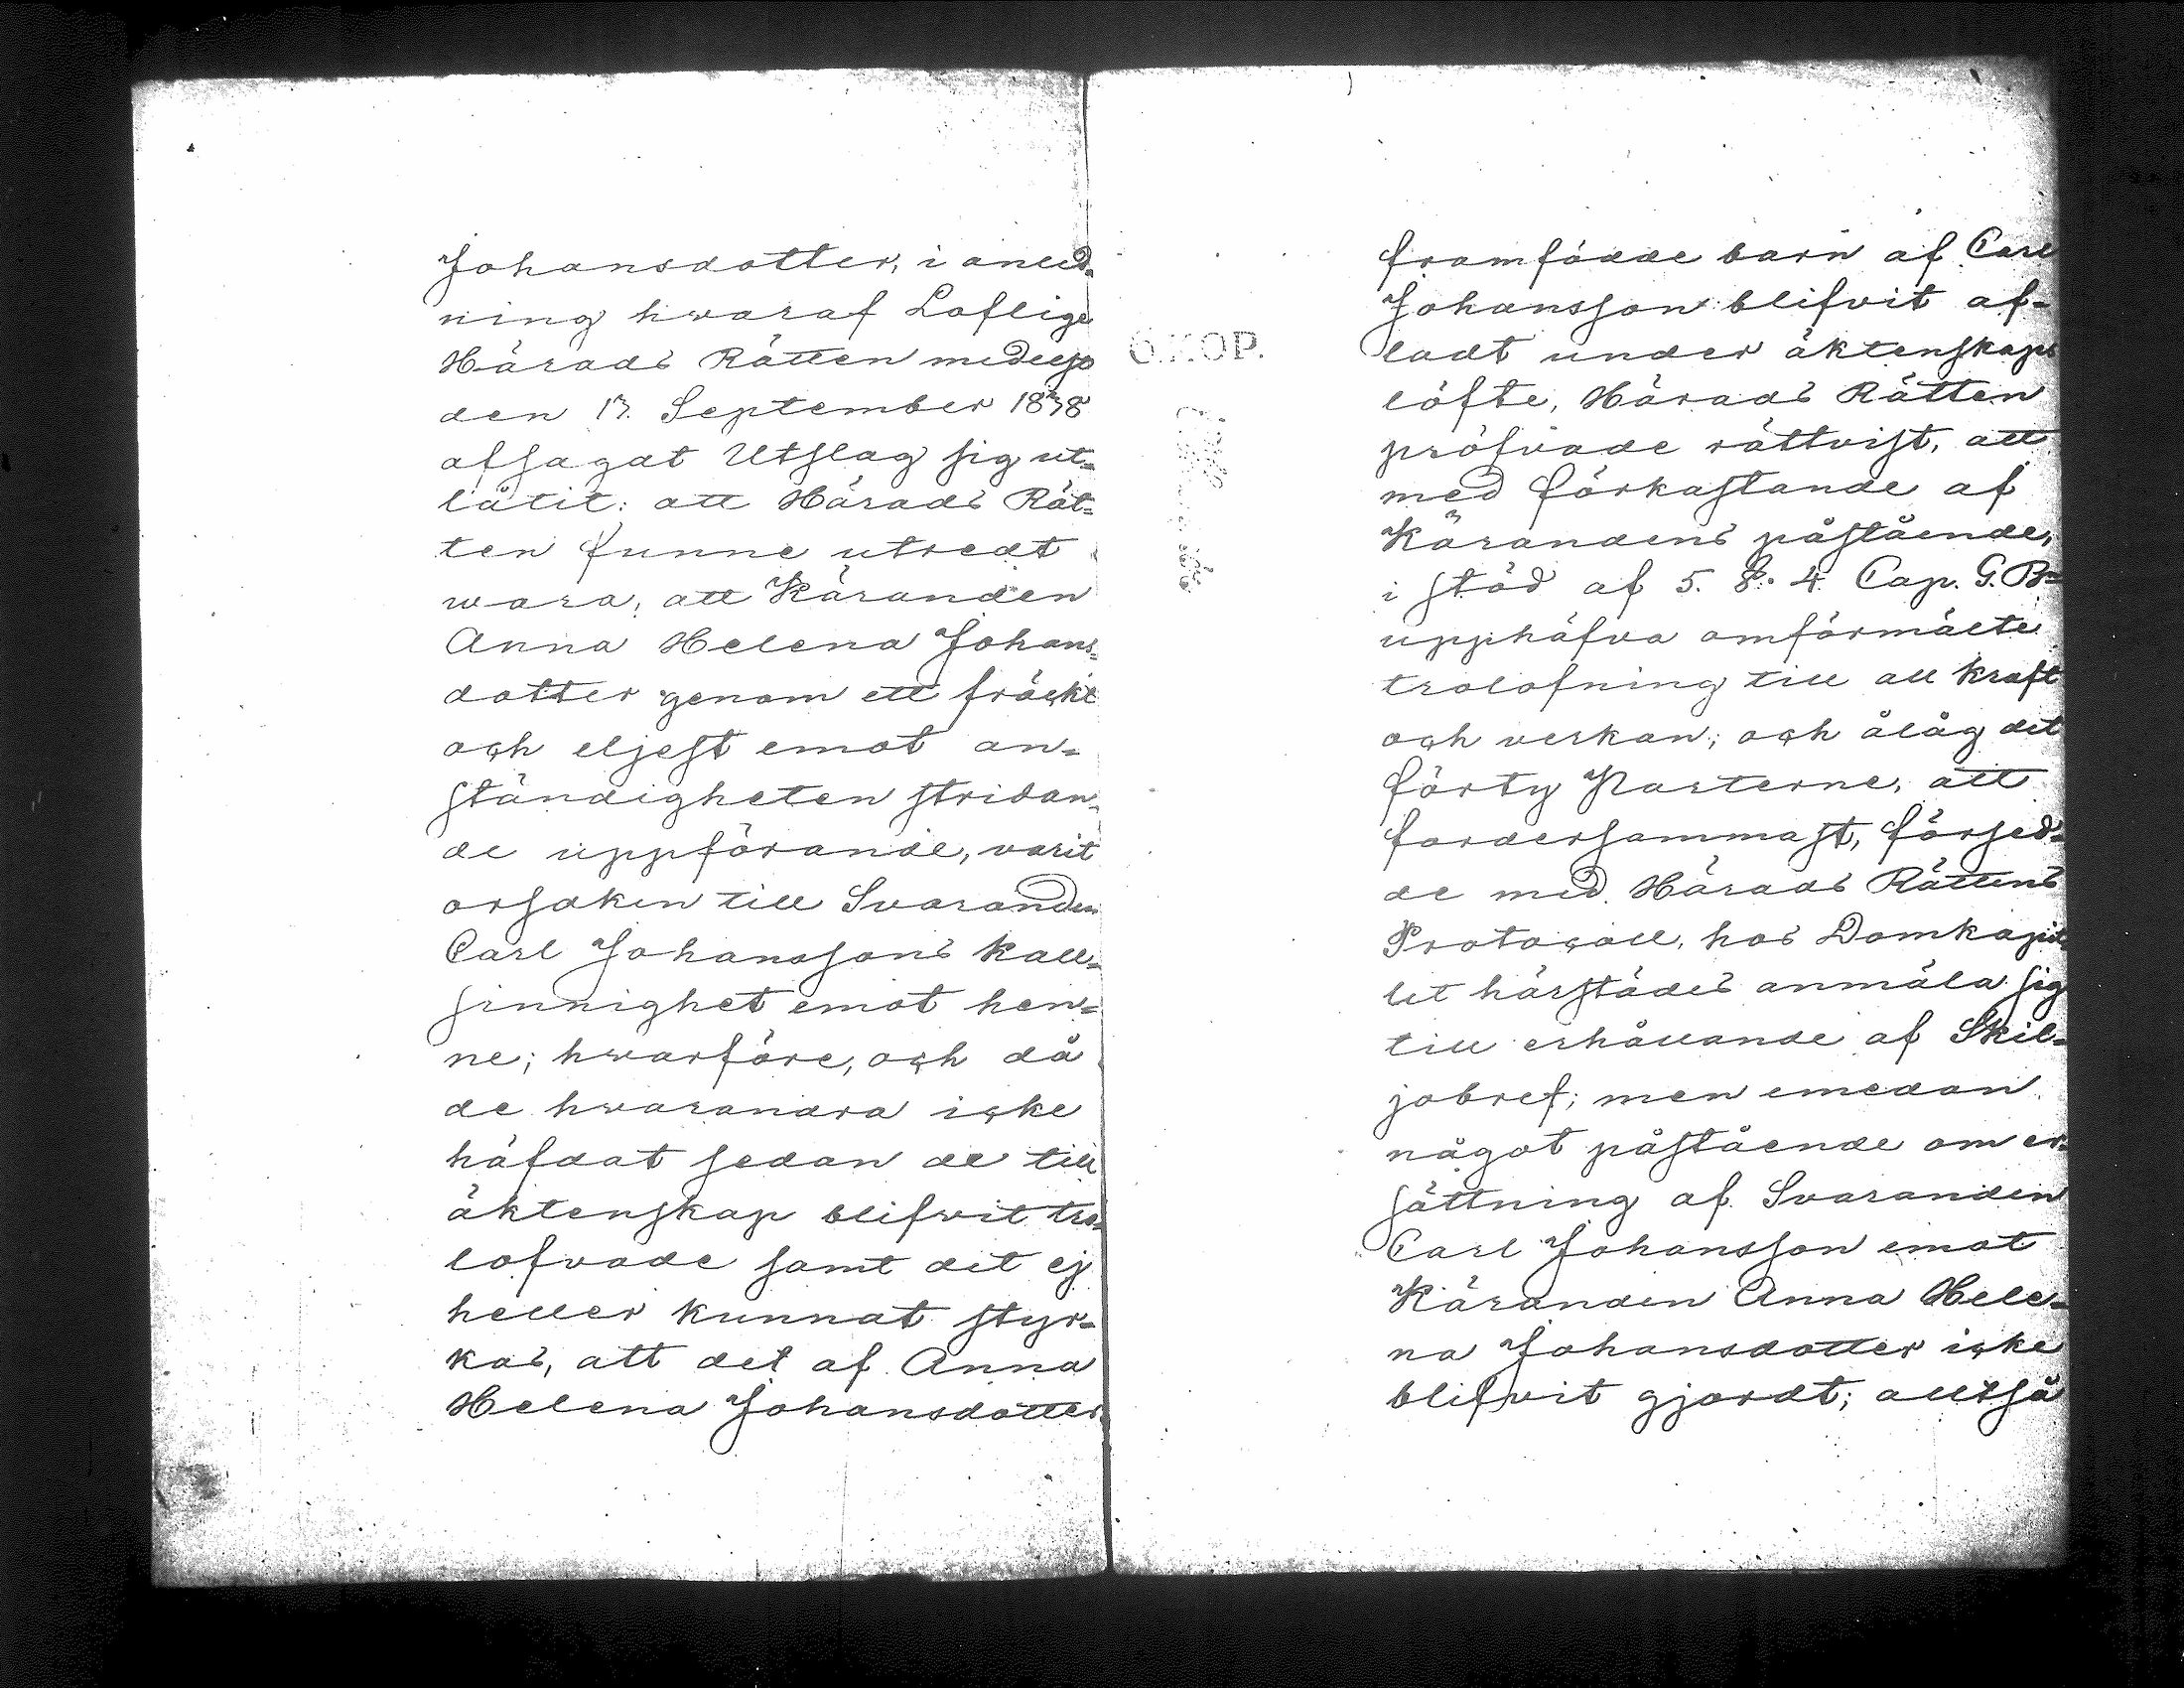 Johansdotter, i anled-
ning hwaraf Loflige
Härads Rätten medelst
den 17. September 1838
afsagat Utslag sig ut-
låtit: att Härads Rät-
ten funne utredt
wara, att Käranden
Anna Helena Johans-
dotter genom ett fräckt
och eljest emot an-
ständigheten stridan-
de uppförande, varit
orsaken till Svaranden
Carl Johanssons kall-
sinnighet emot hen-
ne; hwarföre, och då
de hwarandra icke
häfdat sedan de till
äktenskap blifwit tro-
lofvade samt det ej
heller kunnat styr-
kas, att det af Anna
Helena Johansdotter
Ö.KOP.
framfödde barn af Carl
Johansson blifvit af-
ladt under äktenskaps
löfte, Härads Rätten
pröfvade rättvist, att
med förkastande af
Kärandens påstående,
i stöd af 5. §. 4 Cap. G. B-
upphäfva omförmälte
trolofning till all kraft
och verkan; och ålåg det
förty Parterne, att
fordersammast, försed-
de med Härads Rättens
Protocoll, hos Domkapit-
let härstädes anmäla sig
till erhållande af Skil-
jobref; men emedan
något påstående om er-
sättning af Svaranden
Carl Johansson emot
Käranden Anna Hele-
na Johansdotter icke
blifvit gjordt; alltså